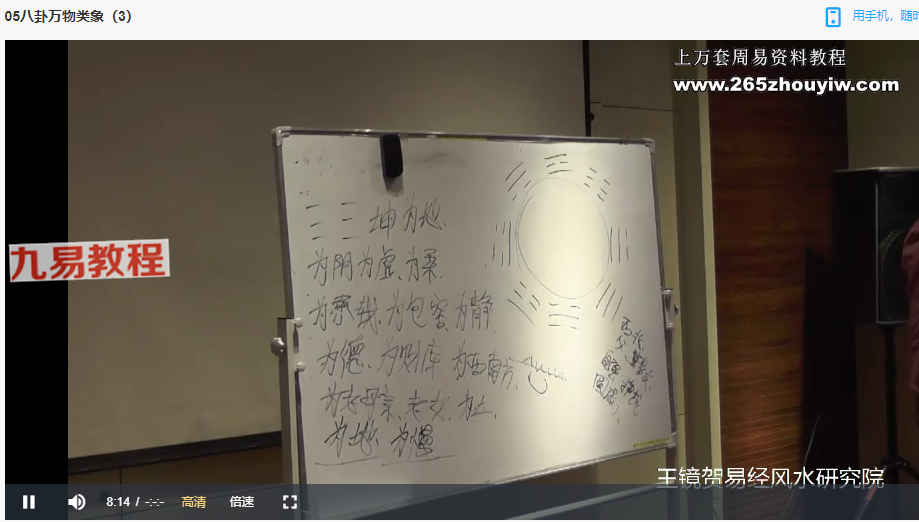 05八卦万物类象（3）
用手机，随时
上万套周易资料教程
www.265zhouyiw.com
九易教程
坤为地
为阴为虚、为柔
为承载、为包容为静
为德、为财库 为西南方、
为老母亲、老女、为土、
为地 为慢
王镜贺易经风水研究院
8:14 / -:-:- 高清 倍速